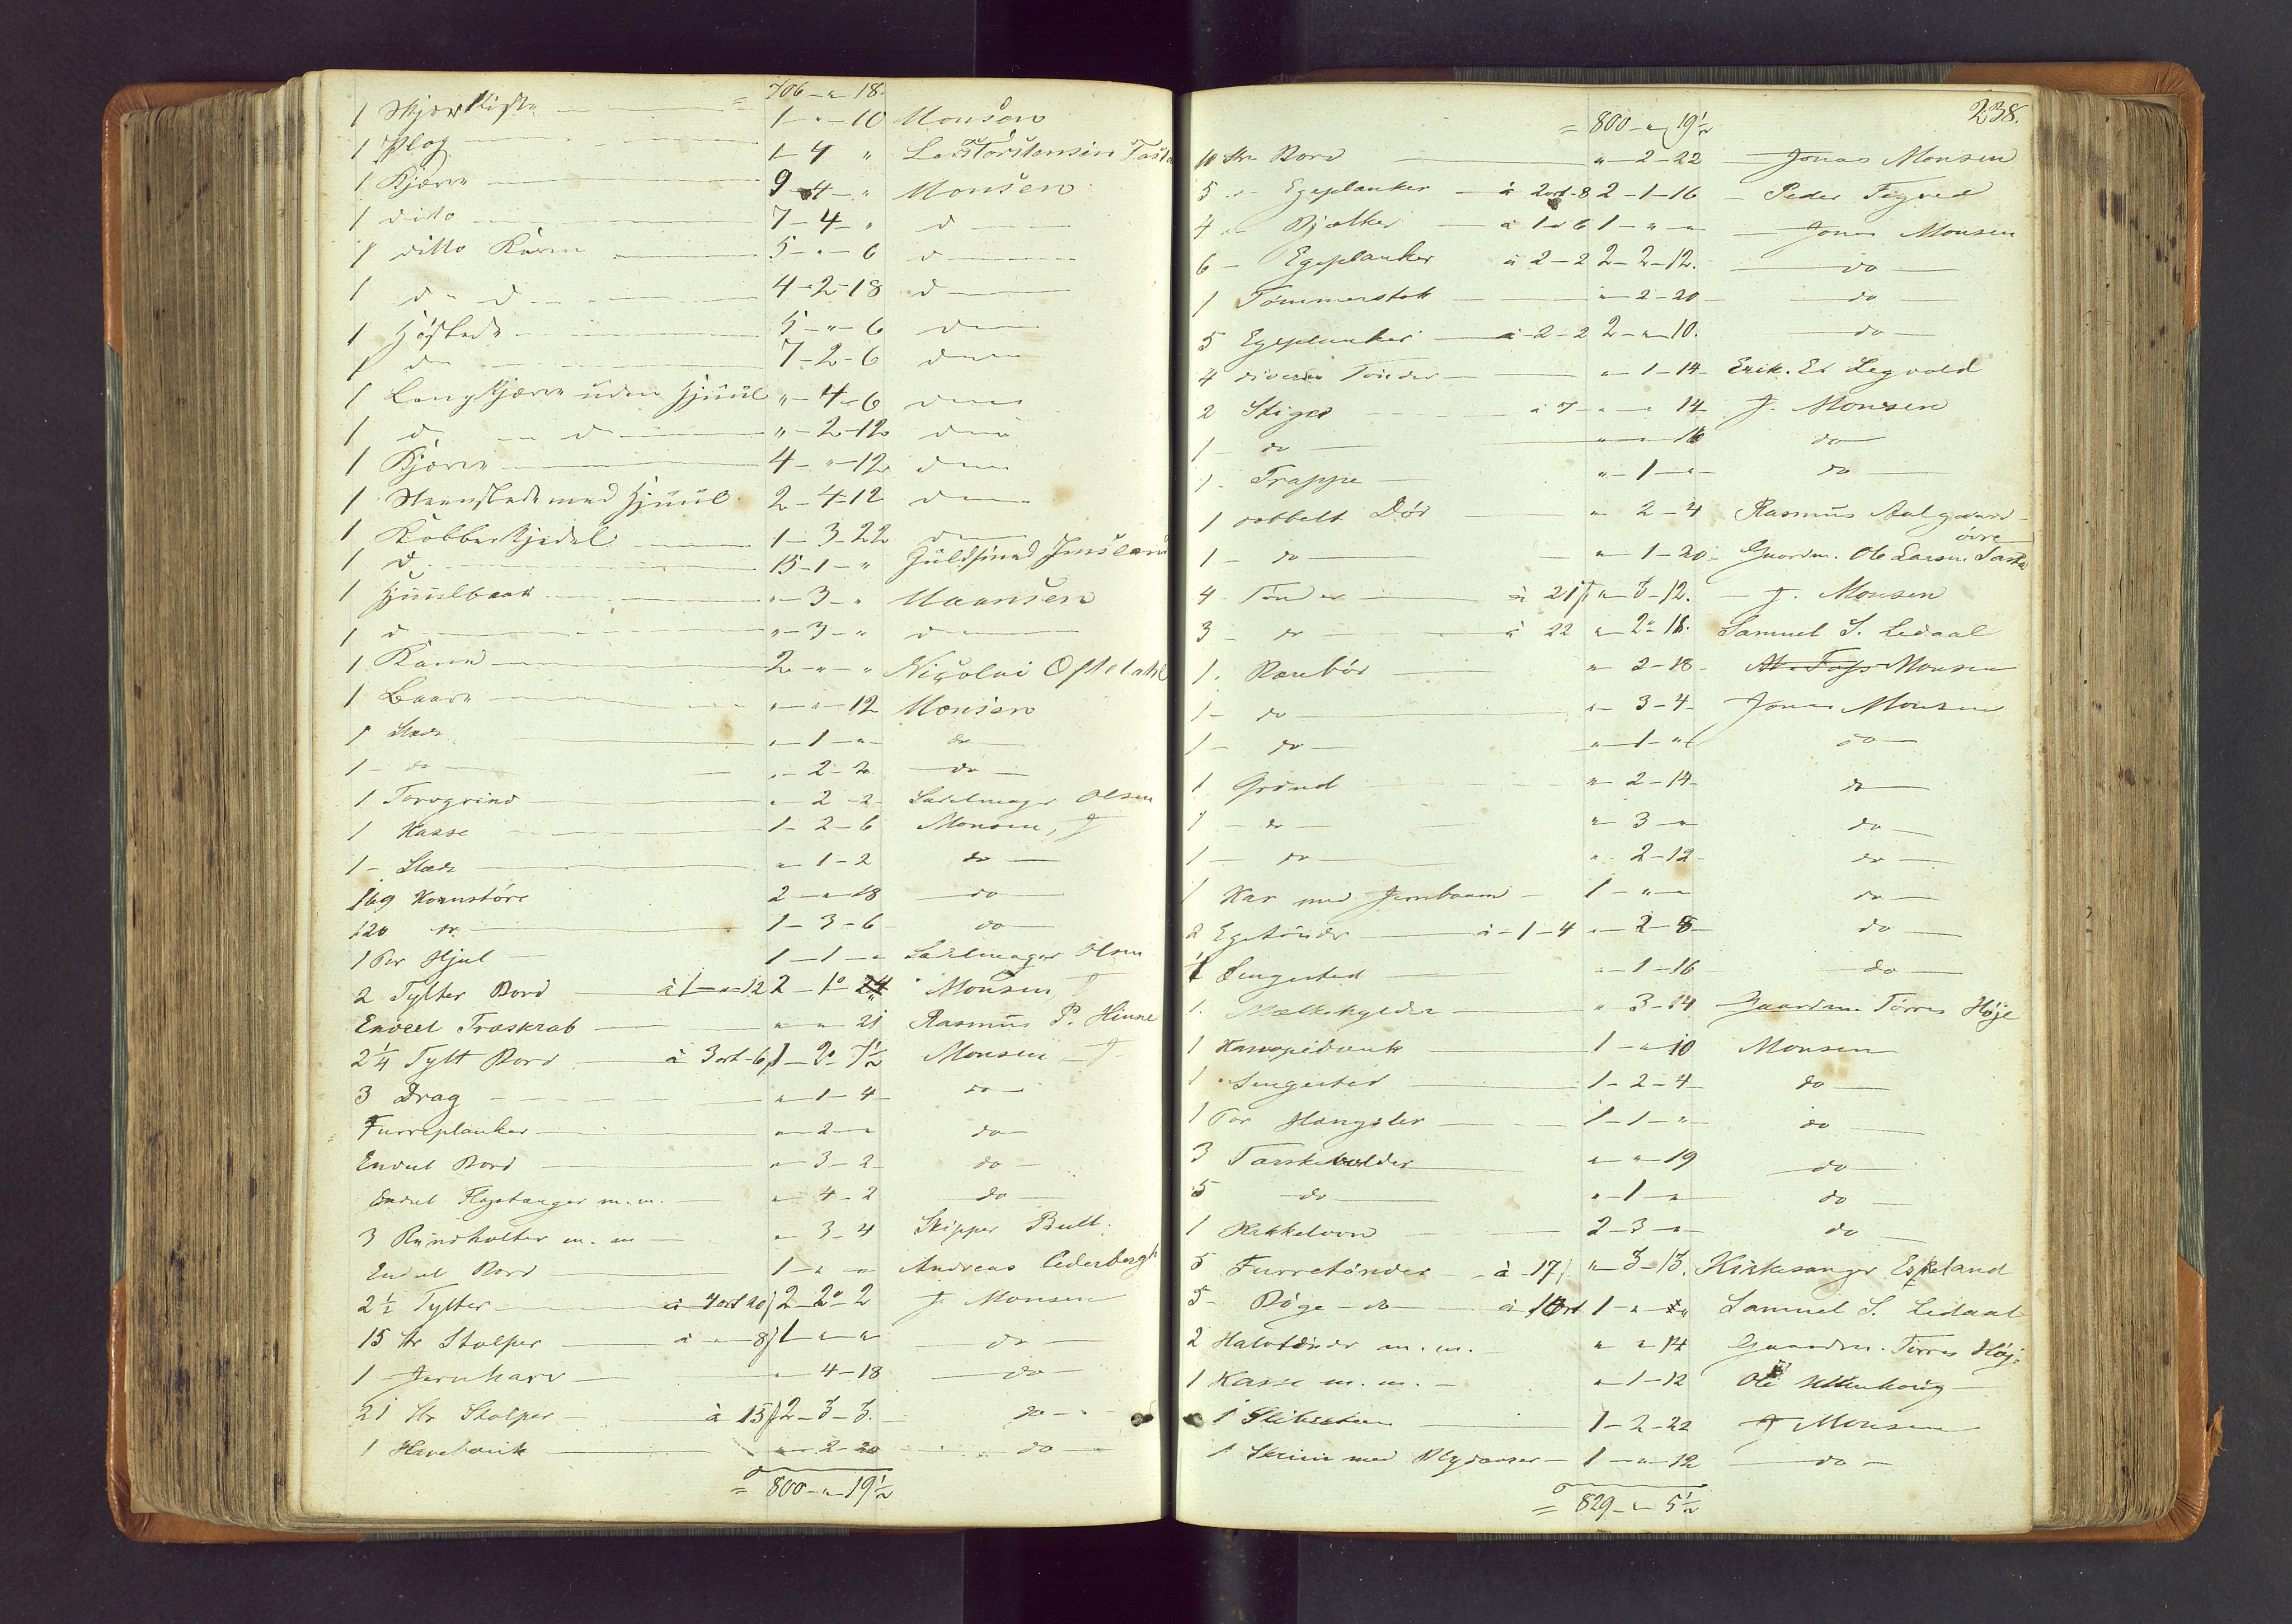 = 706 - " - 18.
1 Skjærkiste 1 - " - 10 Monsen
1 Plog 1 - 4 " Lars Torstensen Tasta
1 Kjærre 9 - 4 - " Monsen
1 ditto 7 - 4 - " d
1 ditto Karm 5 - " - 6 d
1 d " d 4 - 2 - 18 d
1 Høslede 5 - " - 6 do
1 do 7 - 2 - 6 do
1 Langkjærre uden Hjuul " - 4 - 6 do
1 d - d " - 2 - 12 do
1 Kjærre 4 - " - 12 do
1 Steenslede med Hjuul 2 - 4 - 12 do
1 Kobberkjedel 1 - 3 - 22 do
1 d 15 - 1 - " Guldsmed Jmsland
1 Hjuulbaar " - 3 - " Maansen
1 d " - 3 - " d
1 Kane 2 - " - " Nicolai Oftedahl
1 Baare " - " - 12 Monsen
1 Slæde " - 1 - " do
1 - do " - 2 - 2 do
1 Torvgrind " - 2 - 2 Sadelmager Olsen
1 Kasse 1 - 2 - 6 Monsen, J
1 - Slæde " - 1 - 2 do
169 Kornstøre 2 - " - 18 do
120 do 1 - 3 - 6 do
1 Par Hjul 1 - 1 - " Sadelmager Olsen
2 Tylter Bord à 1 - " - 12 2 - 1 - " Monsen, J
Endeel Træskrab " " 21 Rasmus P. Hinne
2 1/4 Tylt Bord à 3 ort - 6 1 - 2 - 7 1/2 Monsen - J
3 Drag " - 1 - 4 do
Furreplanker " - 2 - " do
Endeel Bord " - 3 - 2 do
Endeel Flagstænger m.m. " - 4 - 2 do
3 Rundholter m. m " 3 - 4 Skipper Bull.
Endeel Bord 1 - " - " Andreas Cederbergh
2 1/2 Tylter à 4 ort 20 2 - 2 - 2 J. Monsen
15 St. Stolper à " - 8 1 - " - " do
1 - Jernharv " - 4 - 18 do
21 St. Stolper à 15 2 - 3 - 3. do
1 Havebænk " - 2 - 20 do
= 800 - " - 19 1/2
238.
= 800 - " - 19 1/2
10 Str. Bord " - 2 - 22 Jonas Monsen
5 - Egeplanker à 2 ort - 8 2 - 1 - 16 Peder Figved
4 " Bjælker à 1 - 6 1 - " - " Jonas Monsen
6 - Egeplanker à 2 - 2 2 - 2 - 12. do
1 Tømmerstok " - 2 - 20 do
5 Egeplanker à 2 - 2 2 - " - 10. do
4 diverse Tønder " - 1 - 14 Erik. El Legvold
2 Stiger à 7 - " - " 14 J. Monsen
1 - do " - " - 16 do
1 - Trappe " - 1 - " do
1 dobbelt Dør " 2 - 4 Rasmus Aalgaard
1 - do " - 1 - 20 Gaardm. Ole Larsen øvre Tasta
4 - Tønder à 21 " - 3 - 12. J. Monsen
3 - do à 22 " - 2 - 18. Samuel S. Ledaal
1. Rørebør " 2 - 18 Monsen
1 - do " 3 - 4 Jonas Monsen
1 - do " - 1 - " do
1 Grind " 2 - 14 do
1 - do " 3 - " do
1 - do " 2 - 12 do
1 Kar med Jernbaand 1 - " - " do
2 Egetønder à - 1 - 4 " - 2 - 8 do
1 Sengested " - 1 - 16 do
1. Mælkehylder " 3 - 14 Gaardm. Tørres Høje
1 Kanapebænk 1 - " 10 Monsen
1 Sengested 1 - 2 - 4 do
1 Par Hængsler 1 - 1 - " do
3 Tørskeholder " " - 19 do
5 do " - 1 - " do
1 Kakkelovn 2 - 3 - " do
5 Furretønder à 17 " - 3 - 13. Kirkesanger Eskeland
5 - Bøge - do à 1 ort 1 - " - " Samuel S. Ledaal
2 Halvtønder m. m. " " 14 Gaardm. Tørres Høj.
1 Kasse m. m. " - 1 - 12 Ole
1 Slibesteen 1 - 2 - 22 J Monsen
1 Skrin med 1 - " - 12 do
= 829 - " - 5 1/2